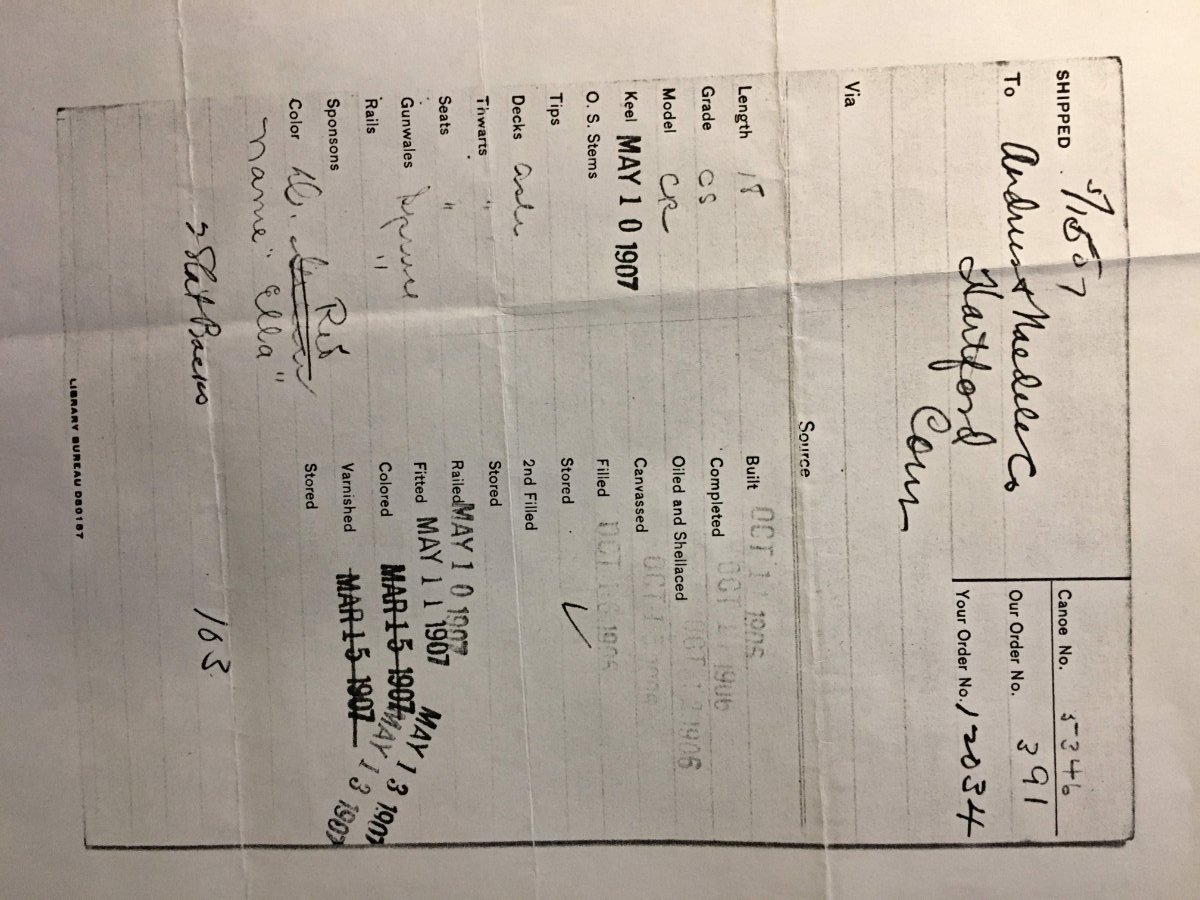 SHIPPED 5/15 07
To Andrus & Naedele Co
Hartford
Conn
Via
Canoe No. 5346
Our Order No. 391
Your Order No. 12034
Source
Length 18
Grade CS
Model CR
Keel MAY 10 1907
O. S. Stems
Tips
Decks ash
Thwarts "
Seats "
Gunwales spruce
Rails "
Sponsons
Color Dk. Red
name "Ella"
2 Slat Backs
163
Built OCT 1906
Completed OCT 1906
Oiled and Shellaced OCT 12 1906
Canvassed OCT 15 1906
Filled OCT 16 1906
Stored ✓
2nd Filled
Stored
Railed MAY 10 1907
Fitted MAY 11 1907
Colored MAR 15 1907 MAY 13 1907
Varnished MAR 15 1907 MAY 13 1907
Stored
LIBRARY BUREAU D80187